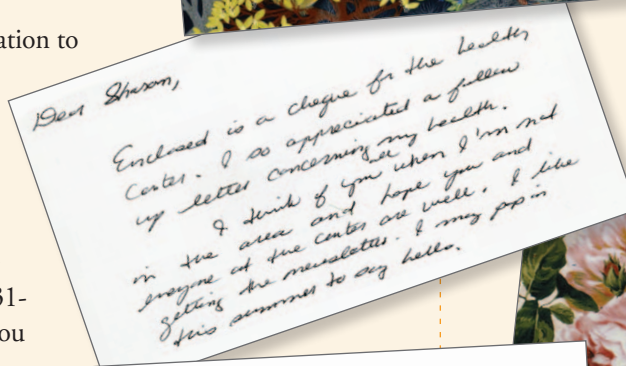 ation to
Dear Sharon,
Enclosed is a cheque for the health
Center. I so appreciated a follow
up letter concerning my health.
I think of you when I'm not
in the area and hope you and
everyone at the center are well. I like
getting the newsletter. I may pop in
this summer to say hello.
31-
ou